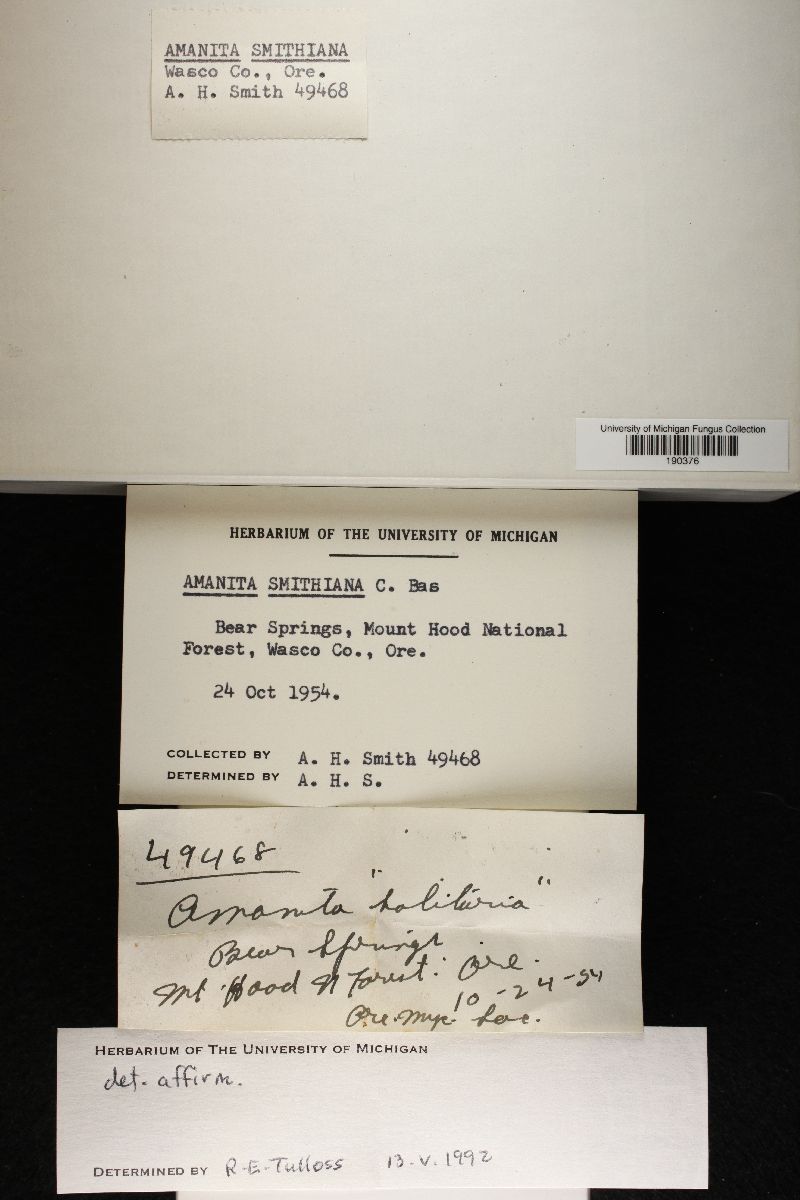 AMANITA SMITHIANA
Wasco Co., Ore.
A. H. Smith 49468
University of Michigan Fungus Collection
190376
HERBARIUM OF THE UNIVERSITY OF MICHIGAN
AMANITA SMITHIANA C. Bas
Bear Springs, Mount Hood National
Forest, Wasco Co., Ore.
24 Oct 1954.
COLLECTED BY A. H. Smith 49468
DETERMINED BY A. H. S.
49468
Amanita "solitaria"
Bear Springs
Mt Hood N Forest. Ore.
10-24-54
Ore. Myc. Soc.
HERBARIUM OF THE UNIVERSITY OF MICHIGAN
det. affirm.
DETERMINED BY R.E. Tulloss 13.V.1992